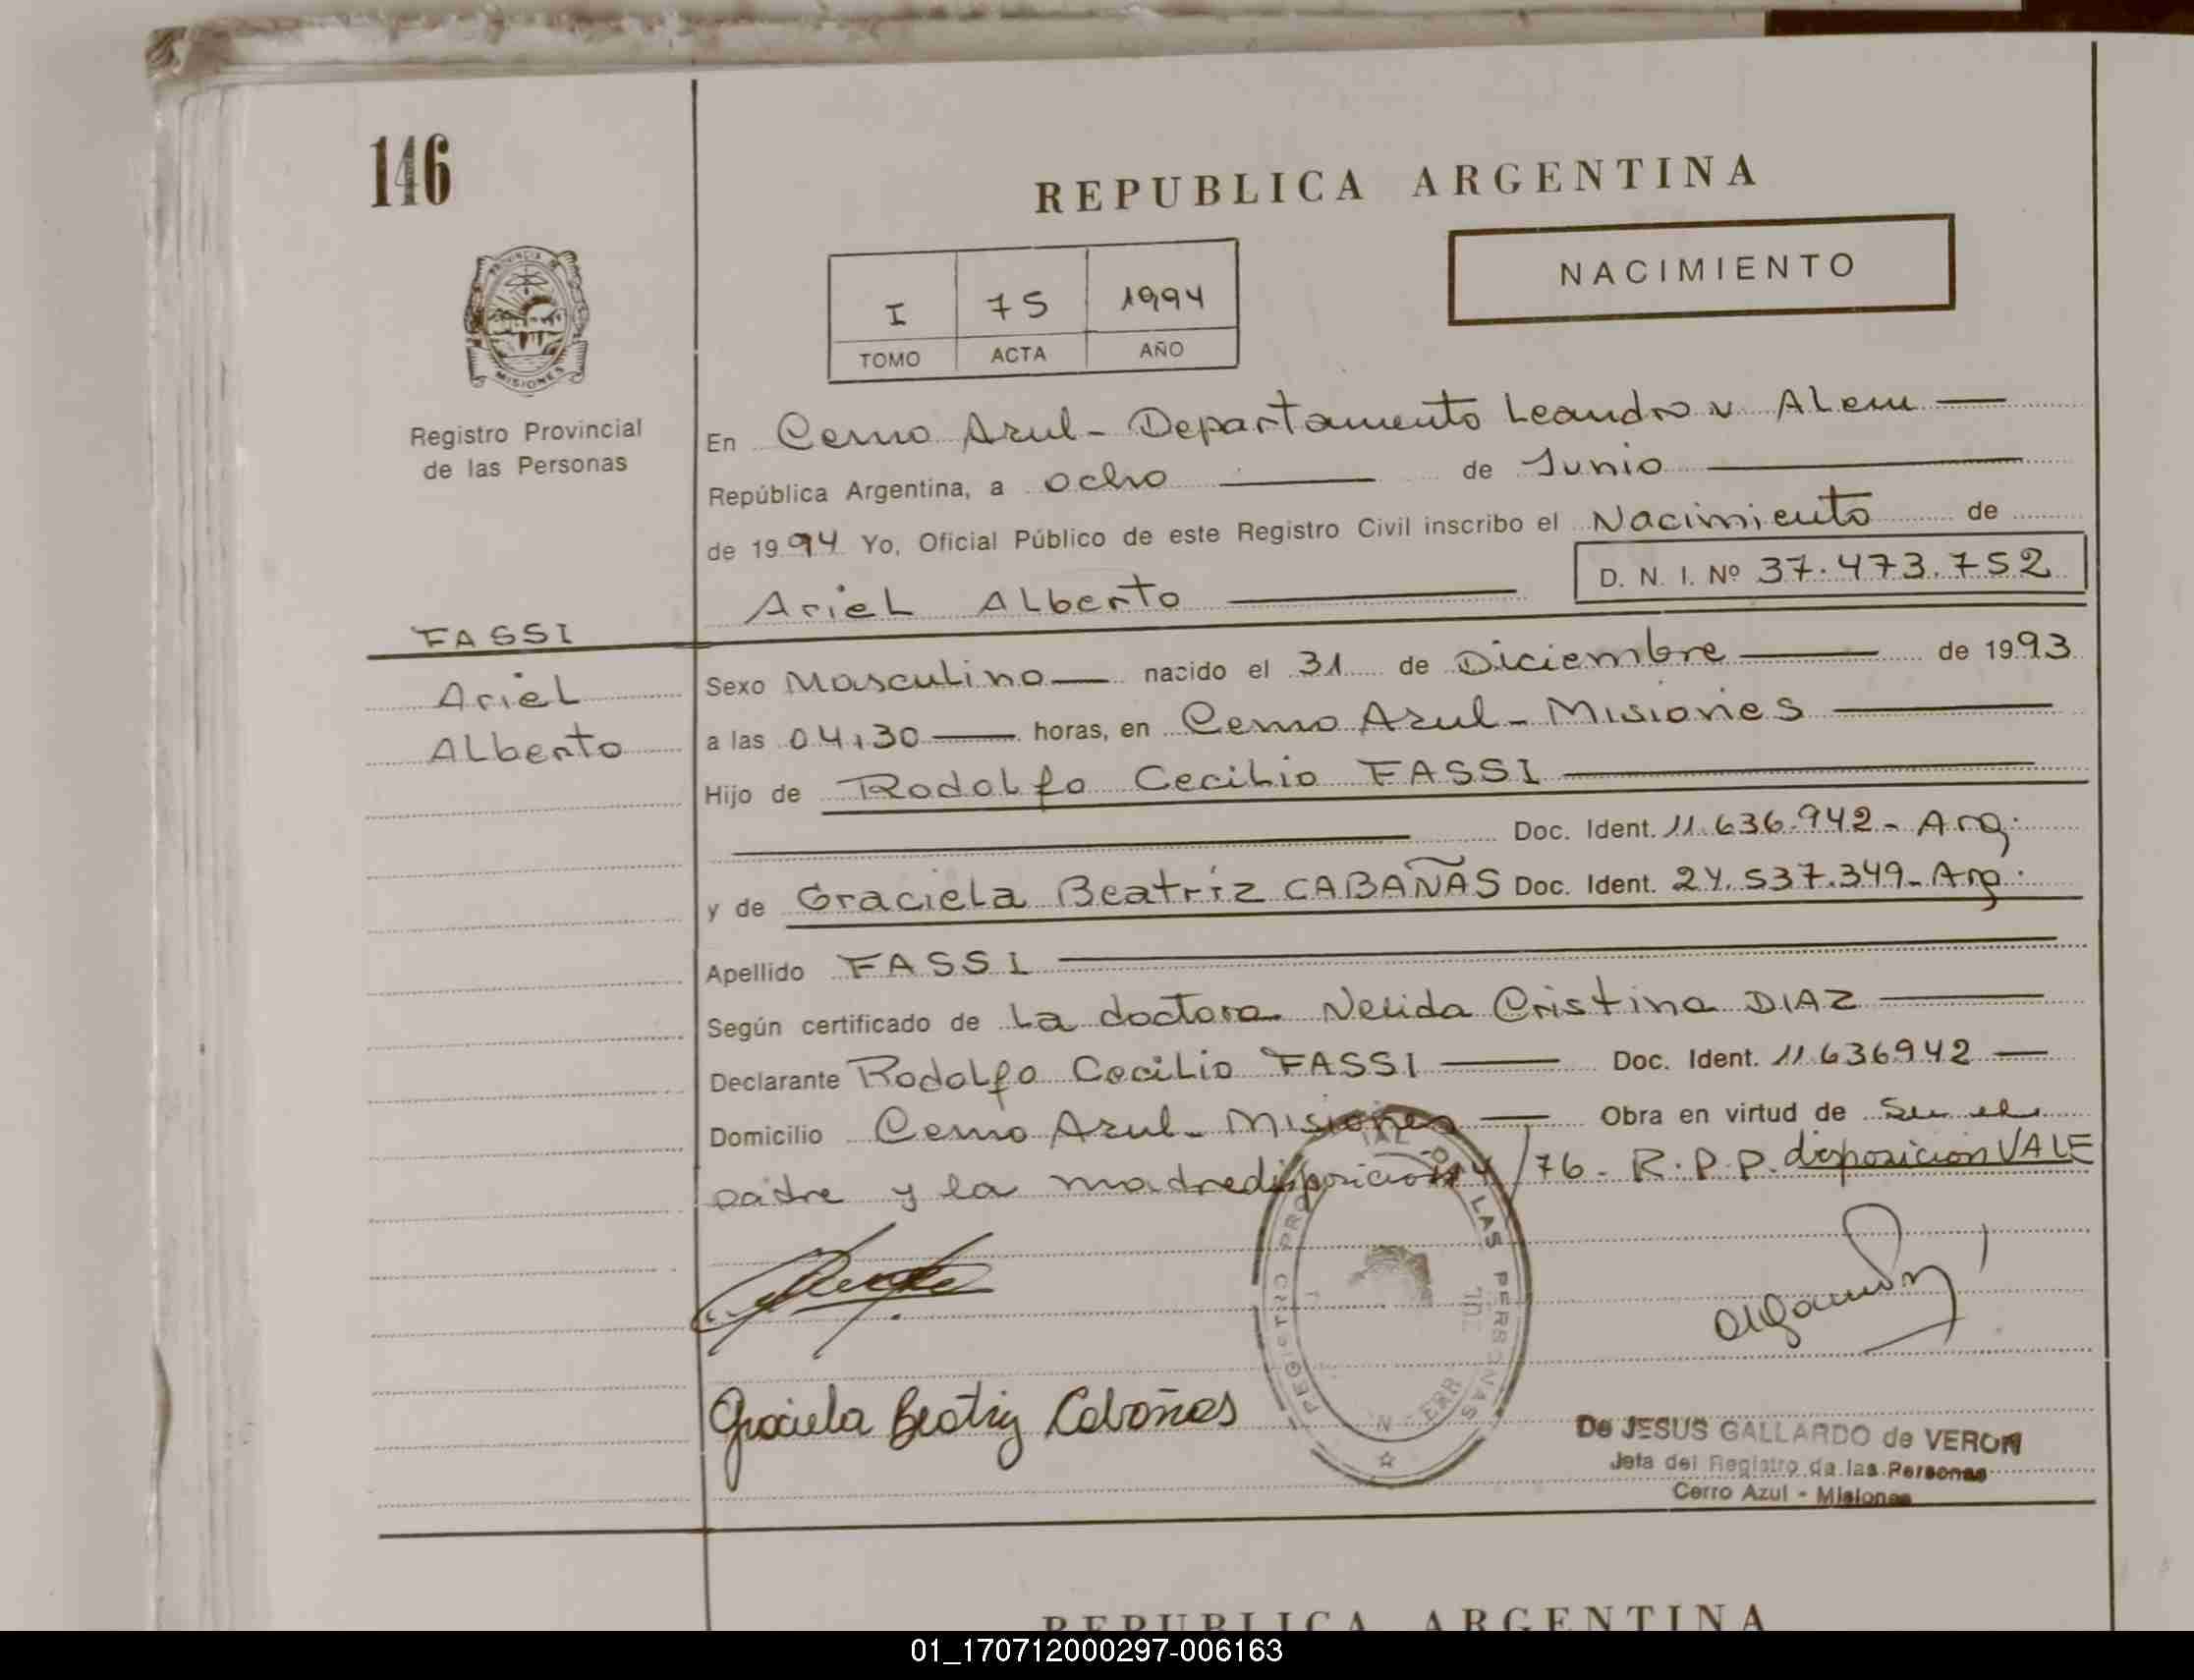 146
REPUBLICA ARGENTINA
NACIMIENTO
I 75 1994
TOMO ACTA AÑO
PROVINCIA DE MISIONES
Registro Provincial
de las Personas
En Cerro Azul - Departamento Leandro N Alem —
República Argentina, a ocho — de Junio —
de 1994 Yo, Oficial Público de este Registro Civil inscribo el Nacimiento de
Ariel Alberto — D. N. I. Nº 37.473.752
FASSI
Ariel
Alberto
Sexo Masculino — nacido el 31 de Diciembre — de 1993
a las 04,30 — horas, en Cerro Azul - Misiones —
Hijo de Rodolfo Cecilio FASSI —
— Doc. Ident. 11.636.942 - Arg.
y de Graciela Beatríz CABAÑAS Doc. Ident. 24.537.349 - Arg.
Apellido FASSI —
Según certificado de La doctora Nelida Cristina DIAZ —
Declarante Rodolfo Cecilio FASSI — Doc. Ident. 11.636942 —
Domicilio Cerro Azul - Misiones — Obra en virtud de Ser el
padre y la madre disposición /76 - R.P.P. disposición VALE
REGISTRO DE LAS PERSONAS
Graciela Beatriz Cabañas
De JESUS GALLARDO de VERON
Jefa del Registro de las Personas
Cerro Azul - Misiones
REPUBLICA ARGENTINA
01_170712000297-006163